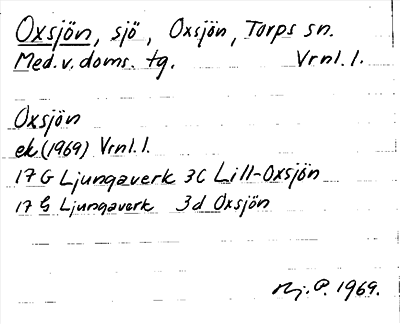 Oxsjön, sjö, Oxsjön, Torps sn.
Med. v. doms. tg. Vrnl. l.
Oxsjön
ek (1969) Vrnl. l.
17 G Ljungaverk 3C Lill-Oxsjön
17 G Ljungaverk 3d Oxsjön
P. 1969.